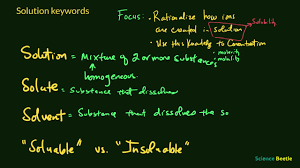 Solution keywords
Focus: • Rationalize how ions
are created in solution
Solubility
• Use this knowledge to Concentration
molarity
molality
Solution = Mixture of 2 or more substances
homogenous
Solute = Substance that dissolves
Solvent = Substance that dissolves the so
"Soluable" vs. "Insoluable"
Science Beetle